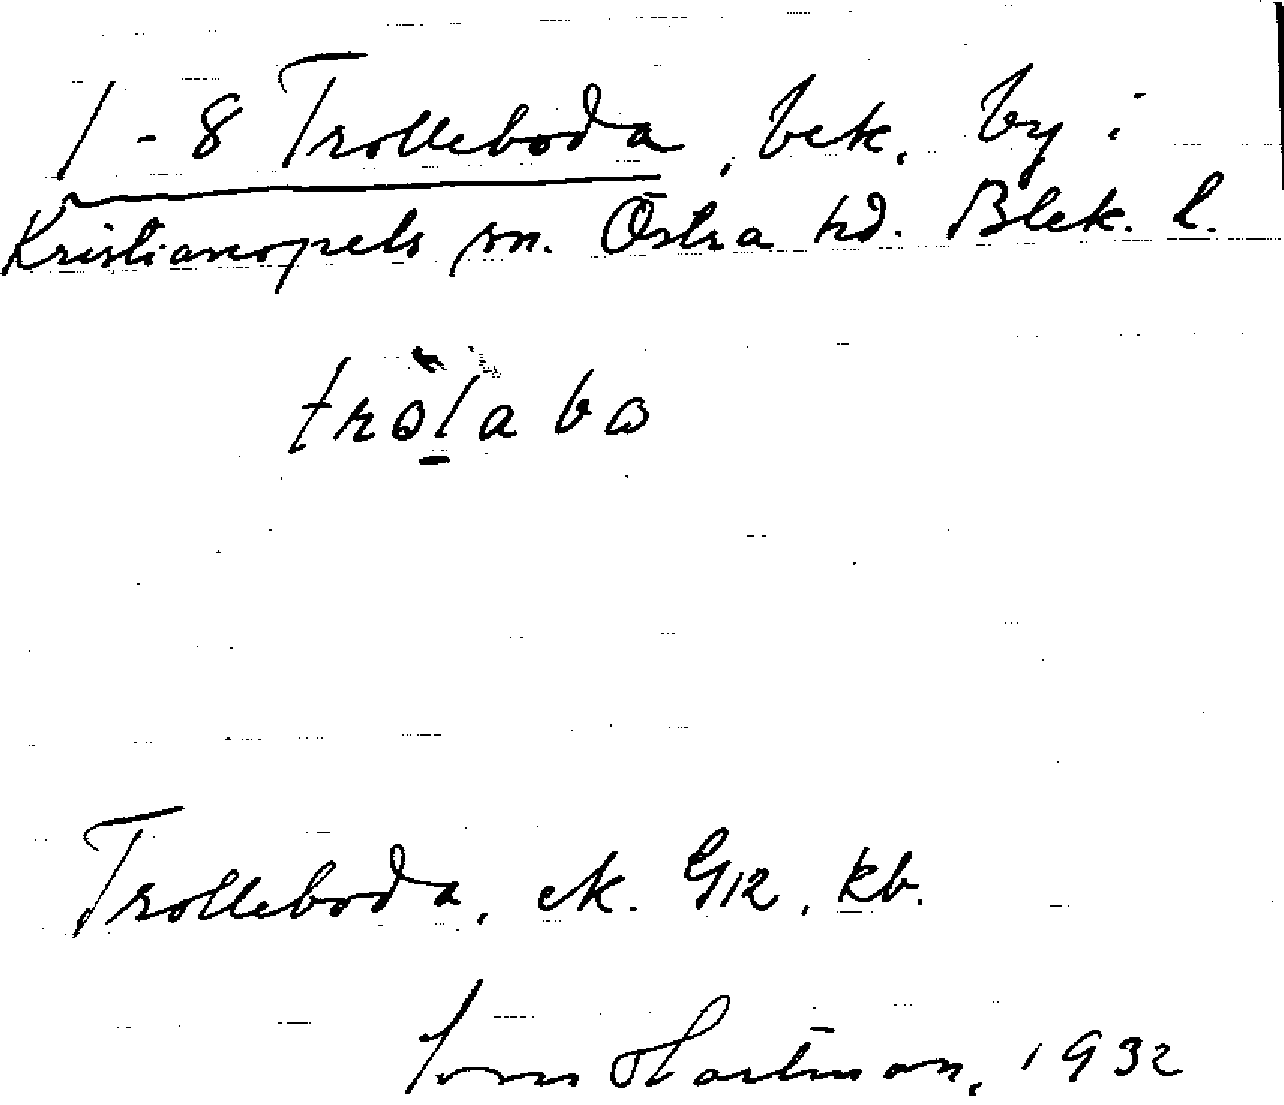 1-8 Trolleboda, bek. by i
Kristianopels sn. Östra hd. Blek. l.
tròlabo
Trolleboda, ek. G12, kb.
Hartman, 1932